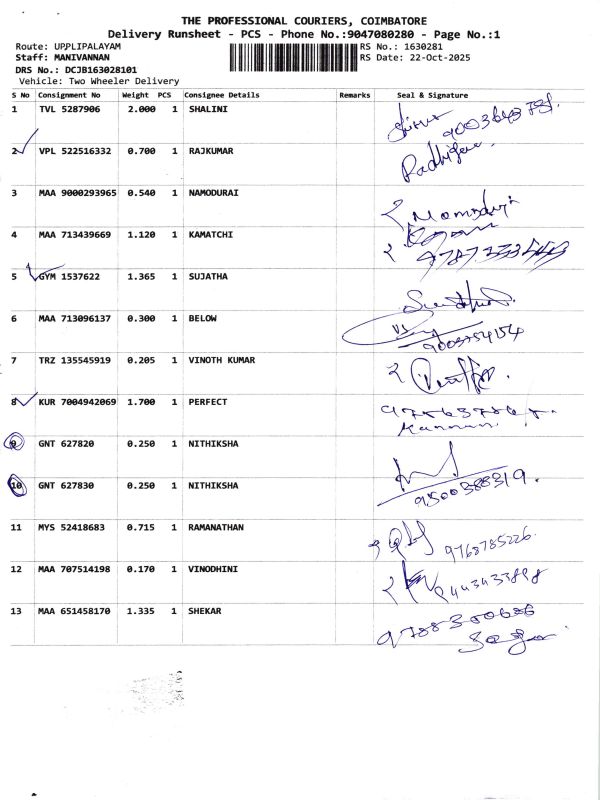 THE PROFESSIONAL COURIERS, COIMBATORE
Delivery Runsheet - PCS - Phone No.:9047080280 - Page No.:1
Route: UPPLIPALAYAM
RS No.: 1630281
Staff: MANIVANNAN
RS Date: 22-Oct-2025
DRS No.: DCJB163028101
Vehicle: Two Wheeler Delivery
S No Consignment No Weight PCS Consignee Details Remarks Seal & Signature
1 TVL 5287906 2.000 1 SHALINI
2 VPL 522516332 0.700 1 RAJKUMAR
3 MAA 9000293965 0.540 1 NAMODURAI
4 MAA 713439669 1.120 1 KAMATCHI
5 GYM 1537622 1.365 1 SUJATHA
6 MAA 713096137 0.300 1 BELOW
7 TRZ 135545919 0.205 1 VINOTH KUMAR
8 KUR 7004942069 1.700 1 PERFECT
Kannan.
9 GNT 627820 0.250 1 NITHIKSHA
10 GNT 627830 0.250 1 NITHIKSHA
9500385319.
11 MYS 52418683 0.715 1 RAMANATHAN
9763785226.
12 MAA 707514198 0.170 1 VINODHINI
13 MAA 651458170 1.335 1 SHEKAR